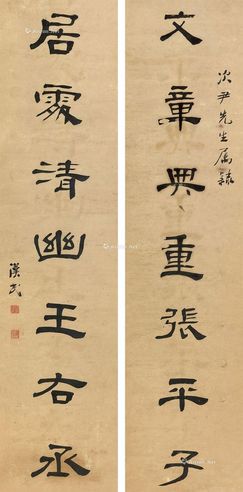 次尹先生属隶
文章典重張平子
居處清幽王右丞
漢民